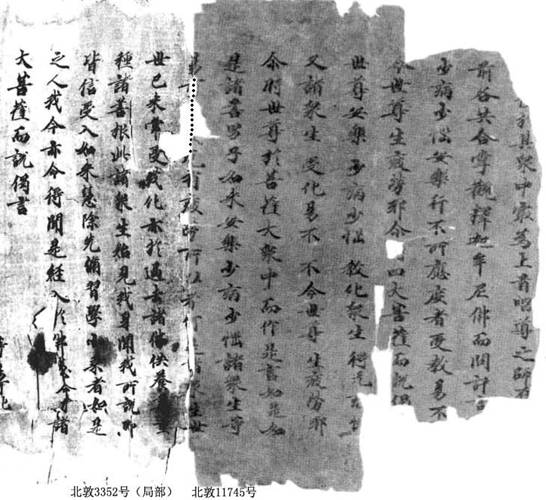 於其眾中最為上首唱導之師在
前各共合掌觀釋迦牟尼佛而問訊言
少病少惱安樂行不所應度者受教易不
令世尊生疲勞耶尔四大菩薩而說偈
世尊安樂少病少惱教化眾生得无
又諸眾生受化易不不令世尊生疲勞耶
尔時世尊於菩薩大眾中而作是言如是如
是諸善男子如來安樂少病少惱諸眾生等
易无有疲勞所以者何是諸眾生世
世已來常受我化亦於過去諸佛供養
種諸善根此諸眾生始見我身聞我所說即
皆信受入如來慧除先修習學小乘者如是
之人我今亦令得聞是經入於佛慧尔時諸
大菩薩而說偈言
北敦3352号（局部） 北敦11745号